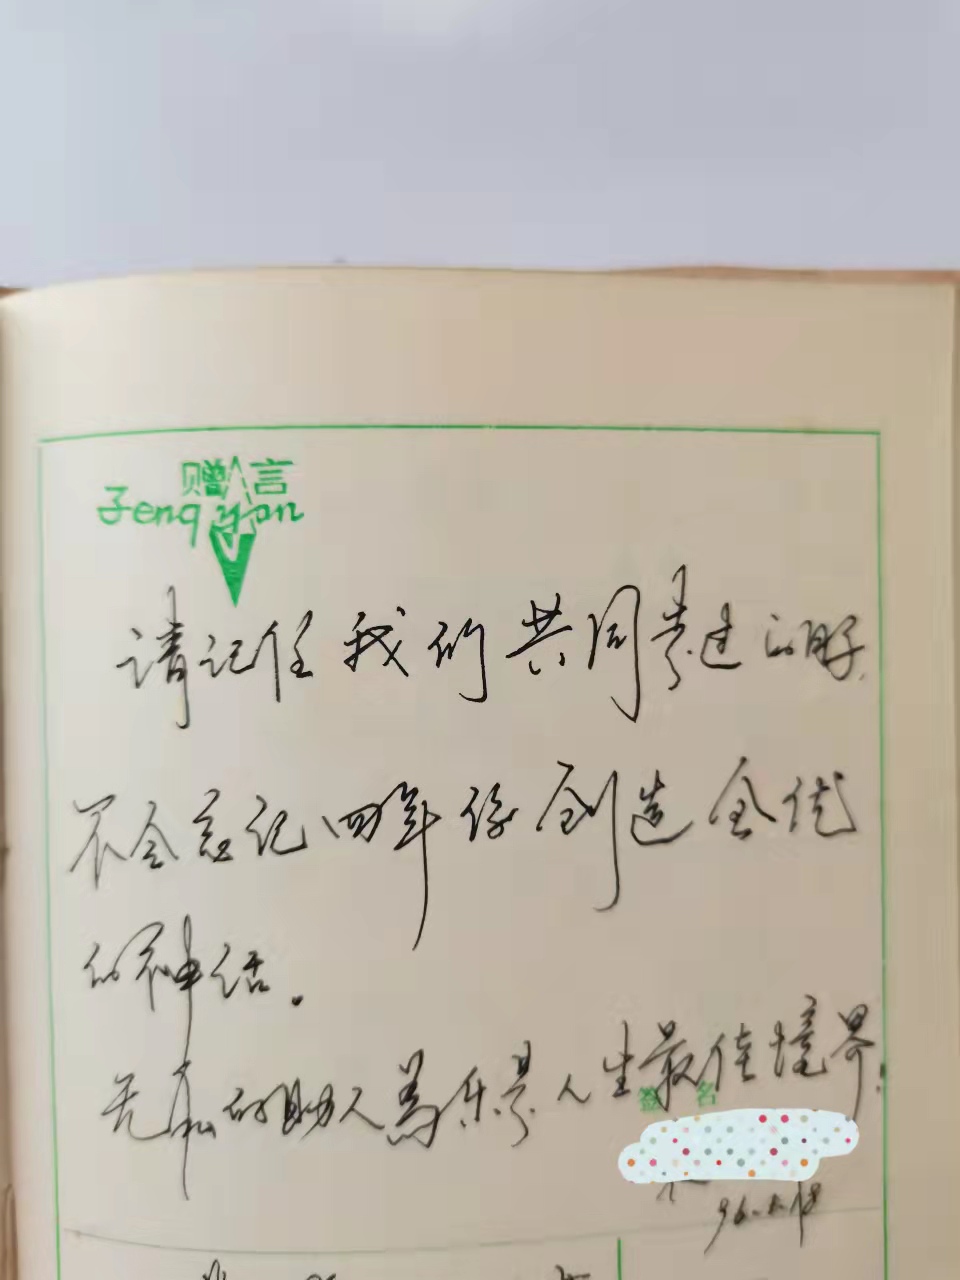 赠言
Zeng yan
请记住我们共同走过的日子
不会忘记四年你创造全优
的神话。
无私的助人为乐是人生最佳境界!
签名